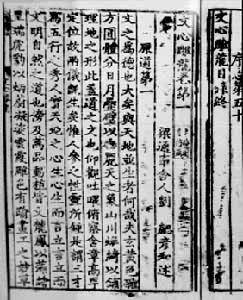 序志第五十
文心雕龍目錄終
文心雕龍卷第
梁通事舍人劉 勰彥和述
原道第一
文之爲德也大矣與天地並生者何哉夫玄黃色雜
方圓體分日月疊璧以垂麗天之象山川煥綺以鋪
理地之形此蓋道之文也仰觀吐曜俯察含章高卑
定位故兩儀既生矣惟人參之性靈所鍾是謂三才
爲五行之秀人實天地之心生心生而言立言立而
文明自然之道也傍及萬品動植皆文龍鳳以藻繪
呈瑞虎豹以炳蔚凝姿雲霞雕色有踰畫工之妙草